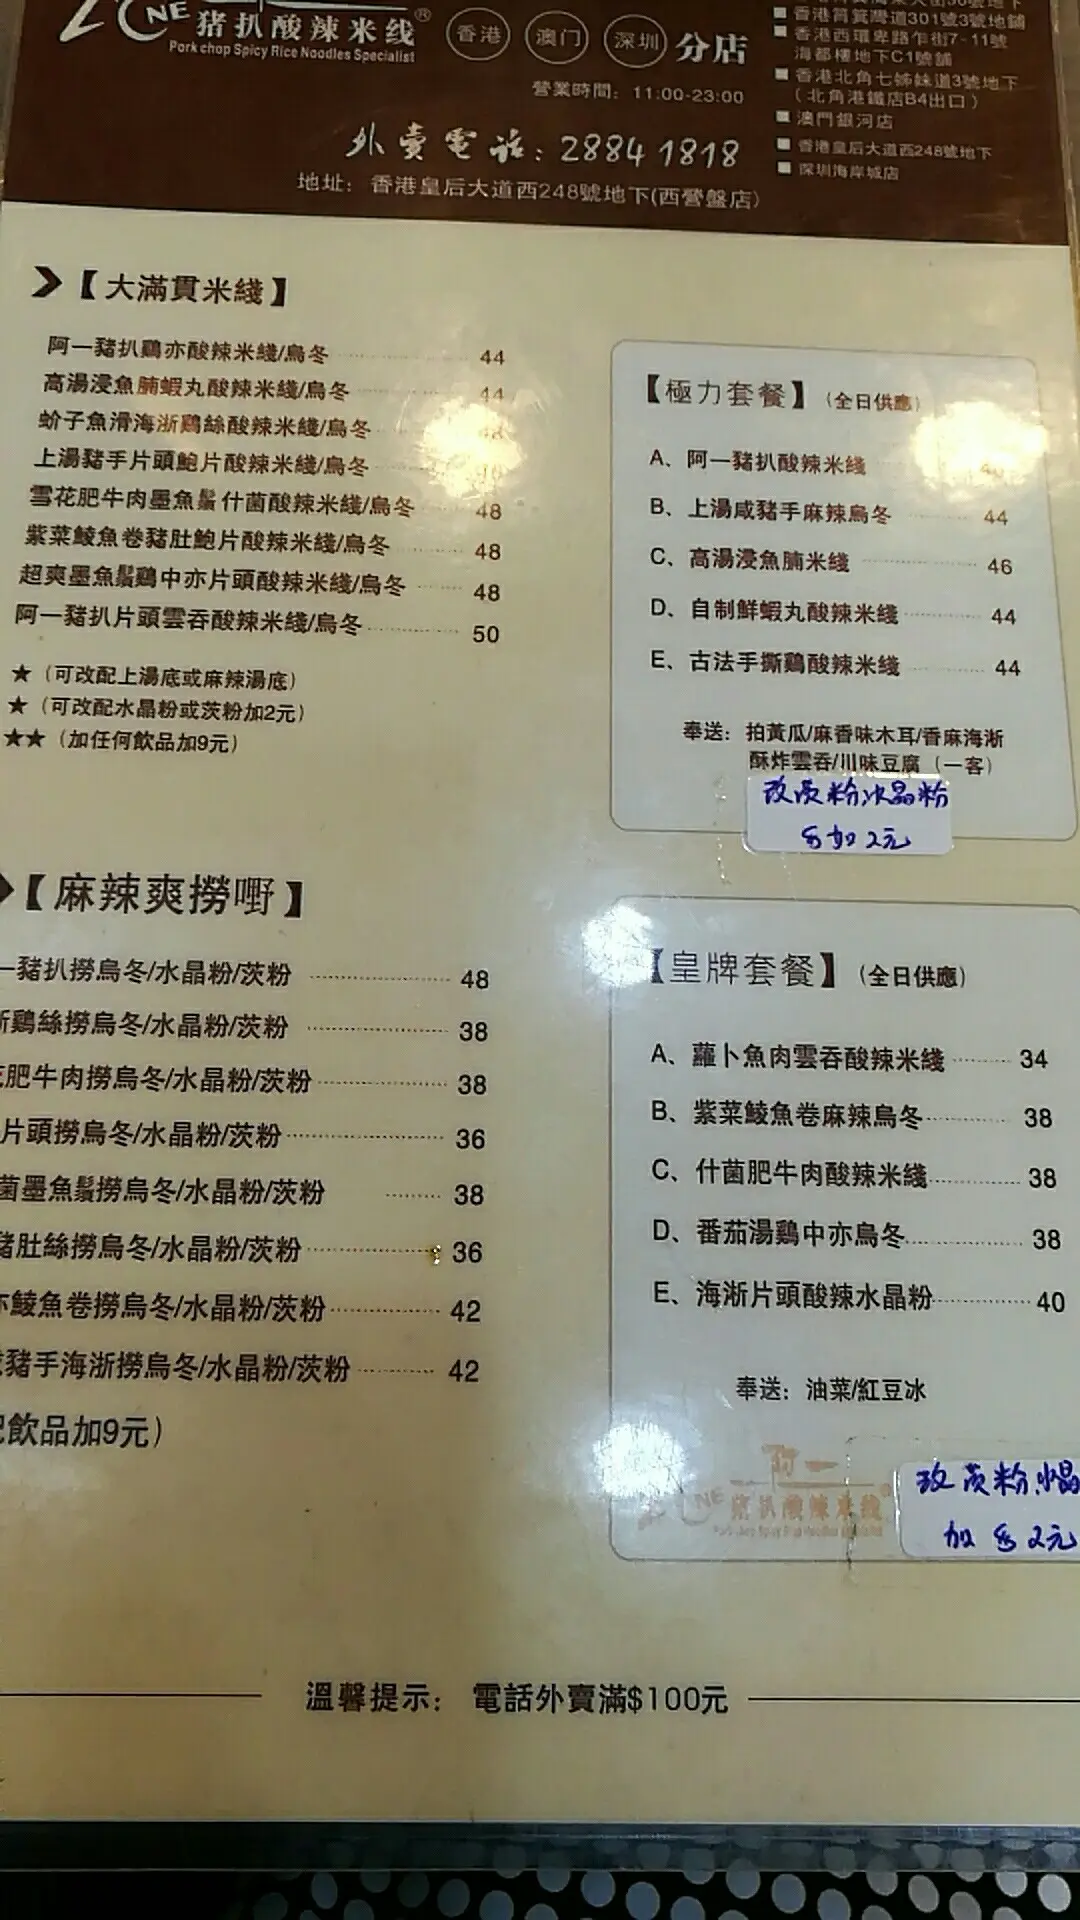 NE 猪扒酸辣米线®
Pork chop Spicy Rice Noodles Specialist
香港 澳门 深圳 分店
營業時間：11:00-23:00
外賣電話：2884 1818
地址：香港皇后大道西248號地下(西營盤店)
■ 香港筲箕灣道301號3號地鋪
■ 香港西環卑路乍街7-11號
海都樓地下C1號舖
■ 香港北角七姊妹道3號地下
（北角港鐵店B4出口）
■ 澳門銀河店
■ 香港皇后大道西248號地下
■ 深圳海岸城店
【大滿貫米綫】
阿一豬扒鷄亦酸辣米綫/烏冬 44
高湯浸魚腩蝦丸酸辣米綫/烏冬 44
蚧子魚滑海浙鷄絲酸辣米綫/烏冬
上湯豬手片頭鮑片酸辣米綫/烏冬
雪花肥牛肉墨魚鬚什菌酸辣米綫/烏冬 48
紫菜鯪魚卷豬肚鮑片酸辣米綫/烏冬 48
超爽墨魚鬚鷄中亦片頭酸辣米綫/烏冬 48
阿一豬扒片頭雲吞酸辣米綫/烏冬 50
★（可改配上湯底或麻辣湯底）
★（可改配水晶粉或茨粉加2元）
★★（加任何飲品加9元）
【極力套餐】（全日供應）
A、阿一豬扒酸辣米綫
B、上湯咸豬手麻辣烏冬 44
C、高湯浸魚腩米綫 46
D、自制鮮蝦丸酸辣米綫 44
E、古法手撕鷄酸辣米綫 44
奉送：拍黃瓜/麻香味木耳/香麻海浙
酥炸雲吞/川味豆腐（一客）
改茨粉水晶粉
多加2元
【麻辣爽撈嘢】
一豬扒撈烏冬/水晶粉/茨粉 48
鷄絲撈烏冬/水晶粉/茨粉 38
肥牛肉撈烏冬/水晶粉/茨粉 38
片頭撈烏冬/水晶粉/茨粉 36
菌墨魚鬚撈烏冬/水晶粉/茨粉 38
豬肚絲撈烏冬/水晶粉/茨粉 36
鯪魚卷撈烏冬/水晶粉/茨粉 42
豬手海浙撈烏冬/水晶粉/茨粉 42
飲品加9元）
【皇牌套餐】（全日供應）
A、蘿卜魚肉雲吞酸辣米綫 34
B、紫菜鯪魚卷麻辣烏冬 38
C、什菌肥牛肉酸辣米綫 38
D、番茄湯鷄中亦烏冬 38
E、海淅片頭酸辣水晶粉 40
奉送：油菜/紅豆冰
阿一
NE 猪扒酸辣米线
改茨粉水晶
加多2元
溫馨提示：電話外賣滿$100元